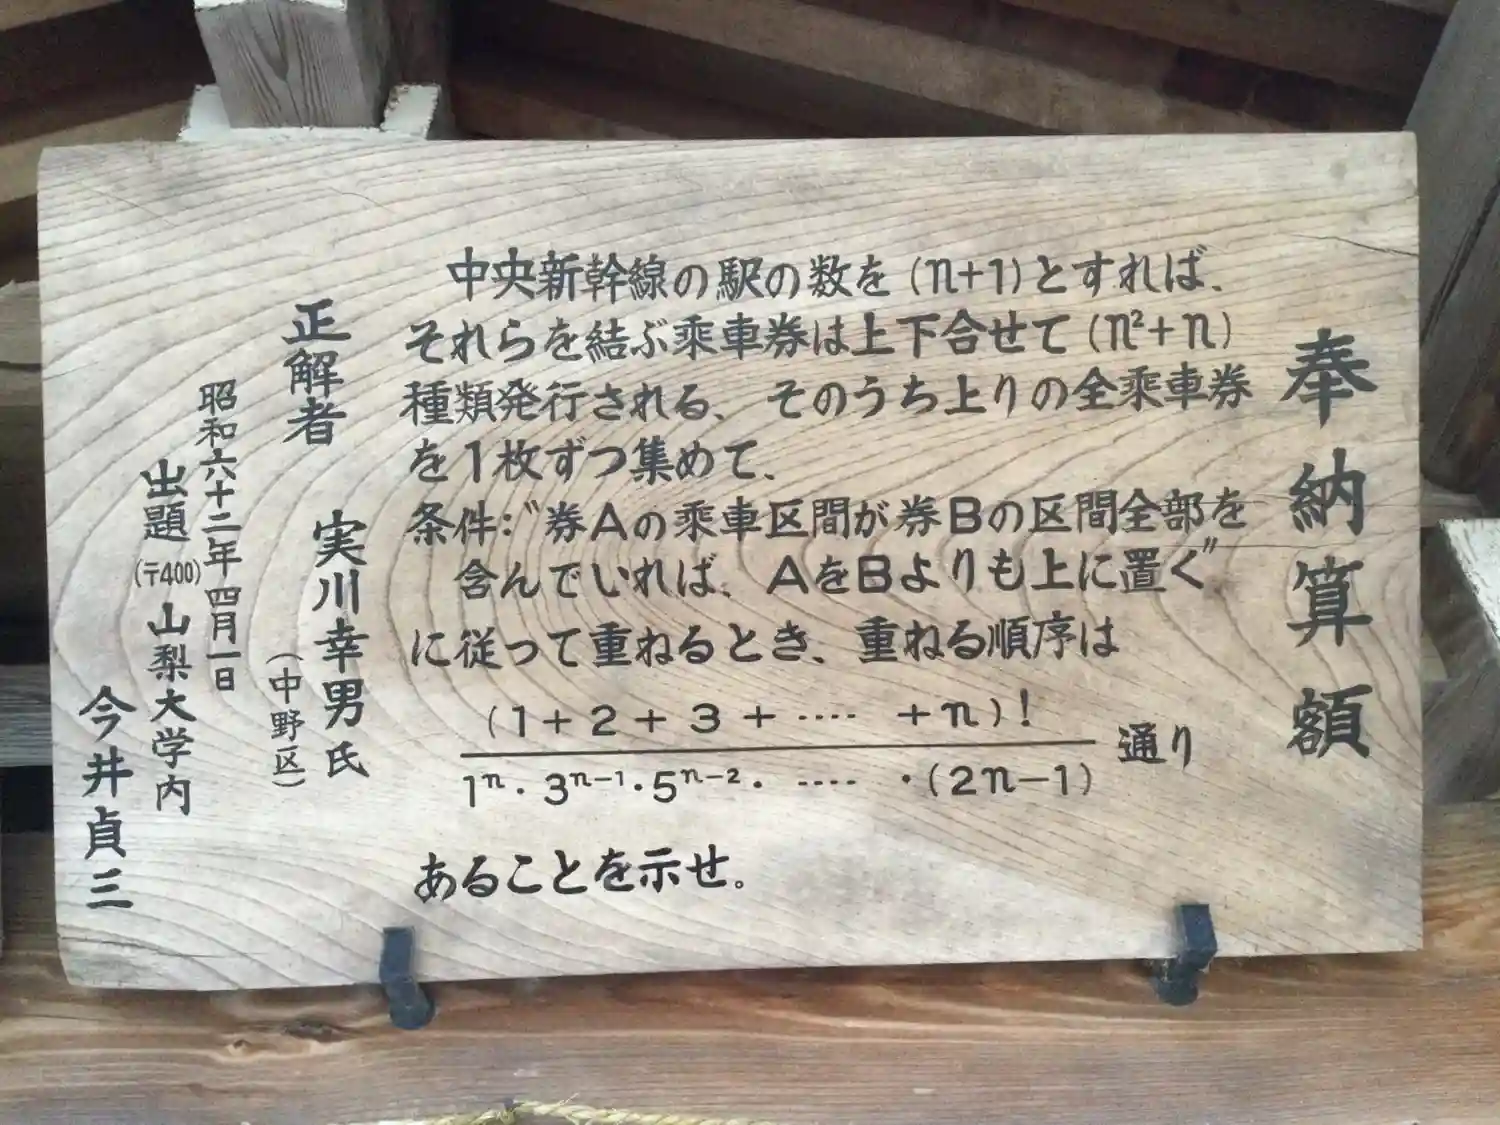 奉納算額
中央新幹線の駅の数を(n+1)とすれば、
それらを結ぶ乗車券は上下合せて(n²+n)
種類発行される、そのうち上りの全乗車券
を1枚ずつ集めて、
条件:〝券Aの乗車区間が券Bの区間全部を
含んでいれば、AをBよりも上に置く〟
に従って重ねるとき、重ねる順序は
(1+2+3+····+n)!
1ⁿ·3ⁿ⁻¹·5ⁿ⁻²·····・(2n−1)
通り
あることを示せ。
正解者 実川幸男氏
(中野区)
昭和六十二年四月一日
出題(〒400)山梨大学内
今井貞三